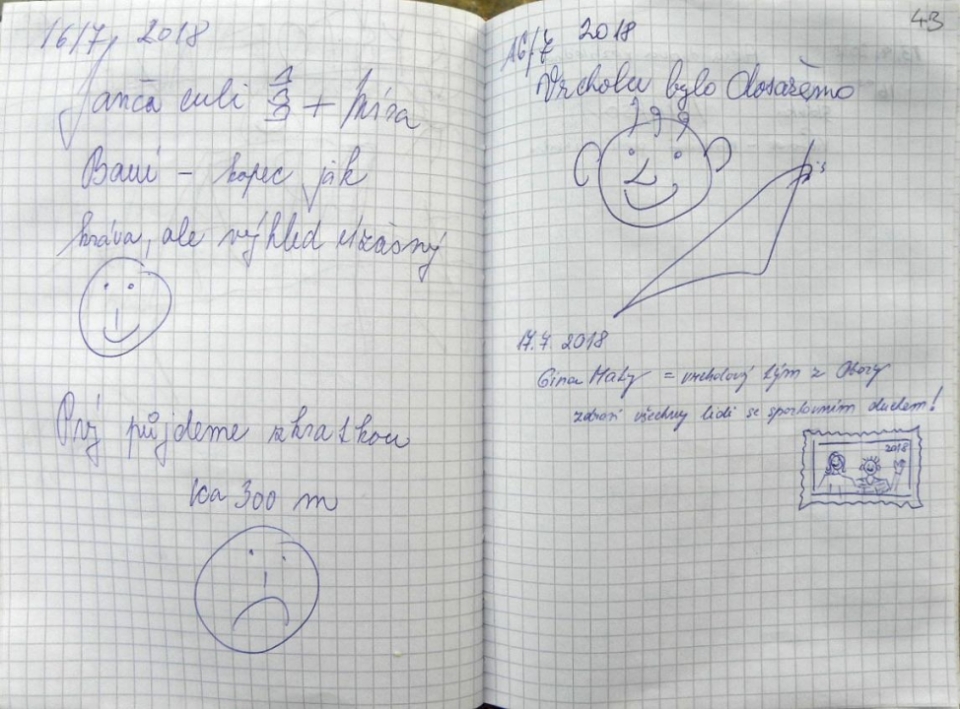 16/7, 2018
Janča culi 1/3 + Míra
Baui - kopec jak
kráva, ale výhled úžasný
Prý půjdeme zkratkou
300 m
43
16/7 2018
Vrcholu bylo dosaženo
17.7. 2018
= vrcholový tým z Obory
zdraví všechny lidi se sportovním duchem!
2018